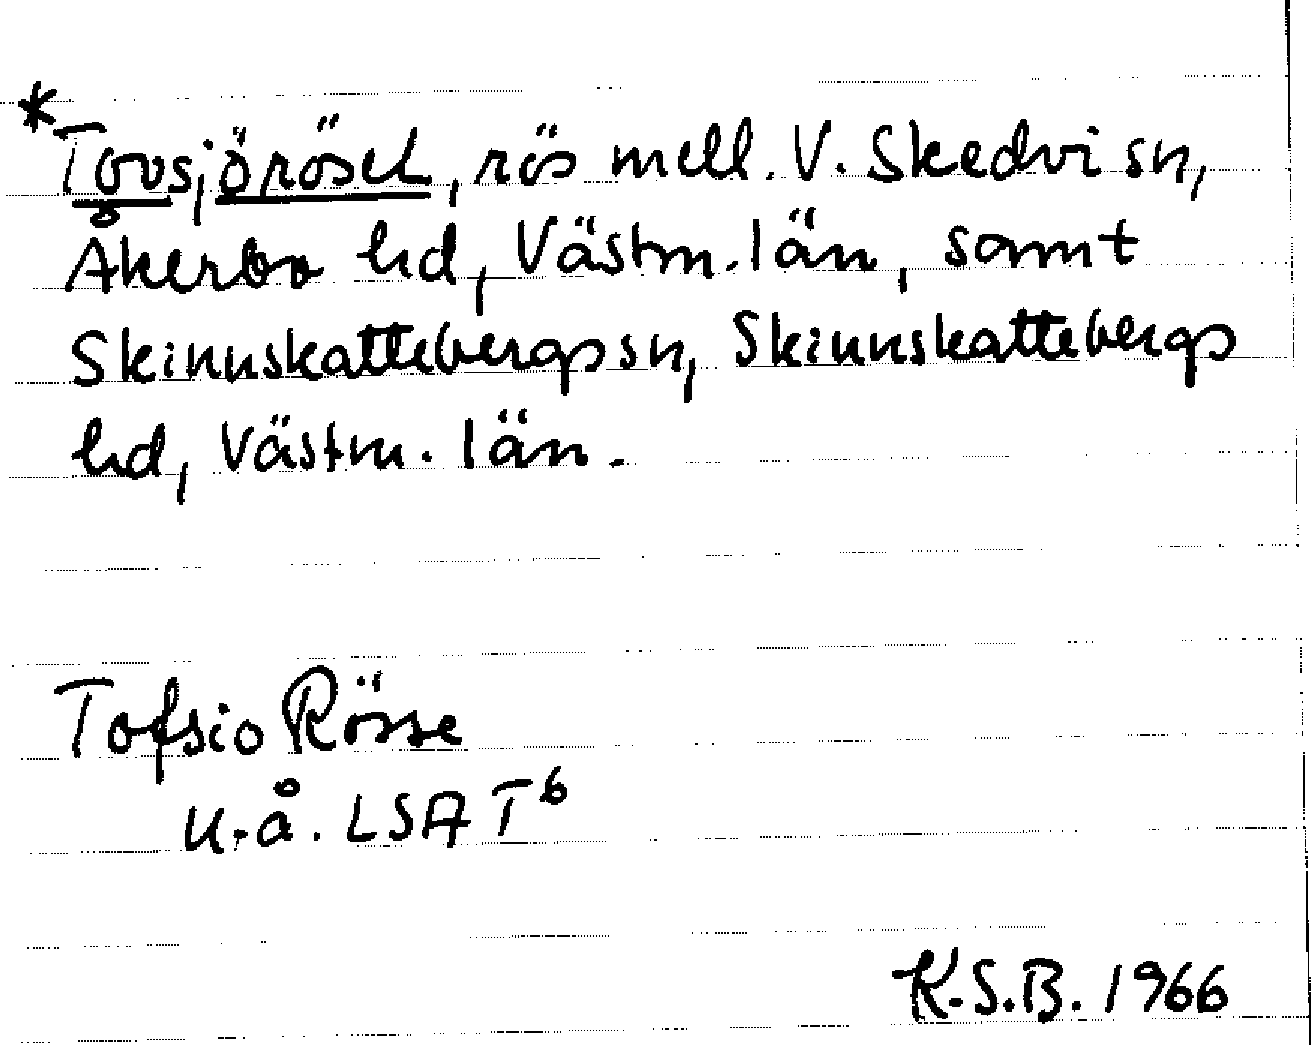 *Tovsjöröset, rös mell. V. Skedvi sn,
Åkerbo hd, Västm. län, samt
Skinnskattebergs sn, Skinnskattebergs
hd, Västm. län.
Tofsio Rösse
u.å. LSA T6
K.S.B. 1966